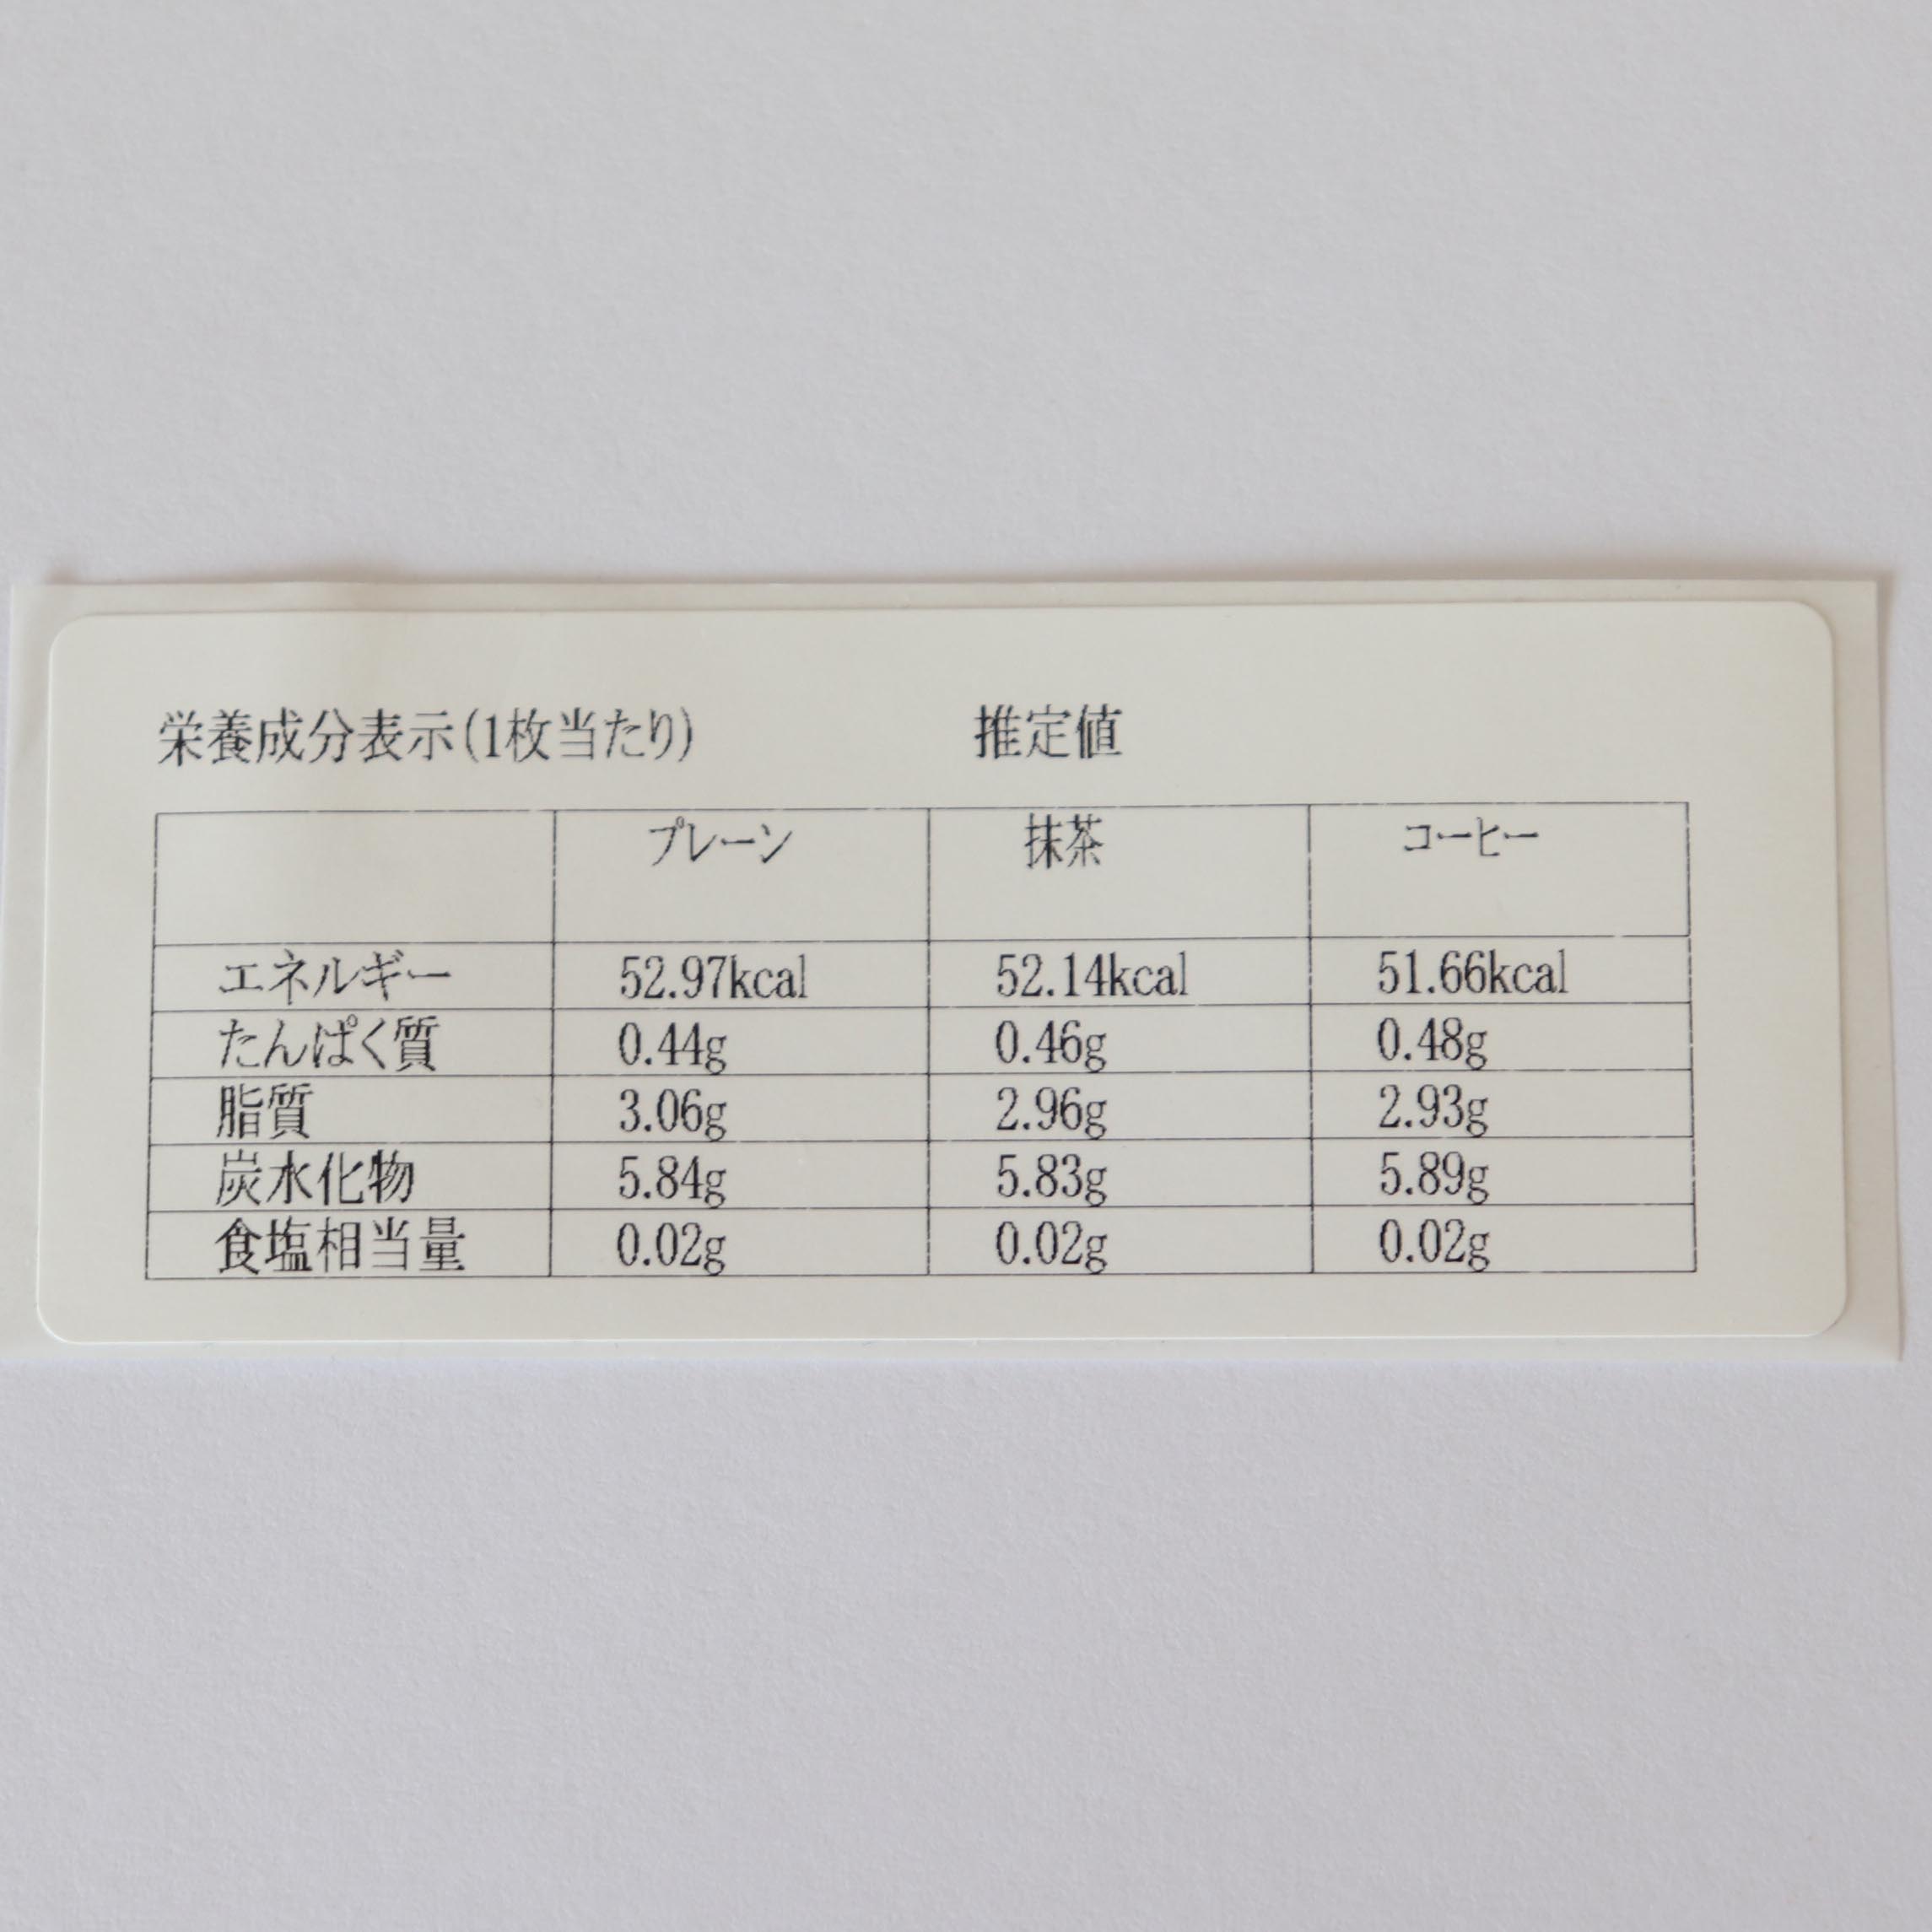 栄養成分表示(1枚当たり) 推定値
プレーン 抹茶 コーヒー
エネルギー 52.97kcal 52.14kcal 51.66kcal
たんぱく質 0.44g 0.46g 0.48g
脂質 3.06g 2.96g 2.93g
炭水化物 5.84g 5.83g 5.89g
食塩相当量 0.02g 0.02g 0.02g